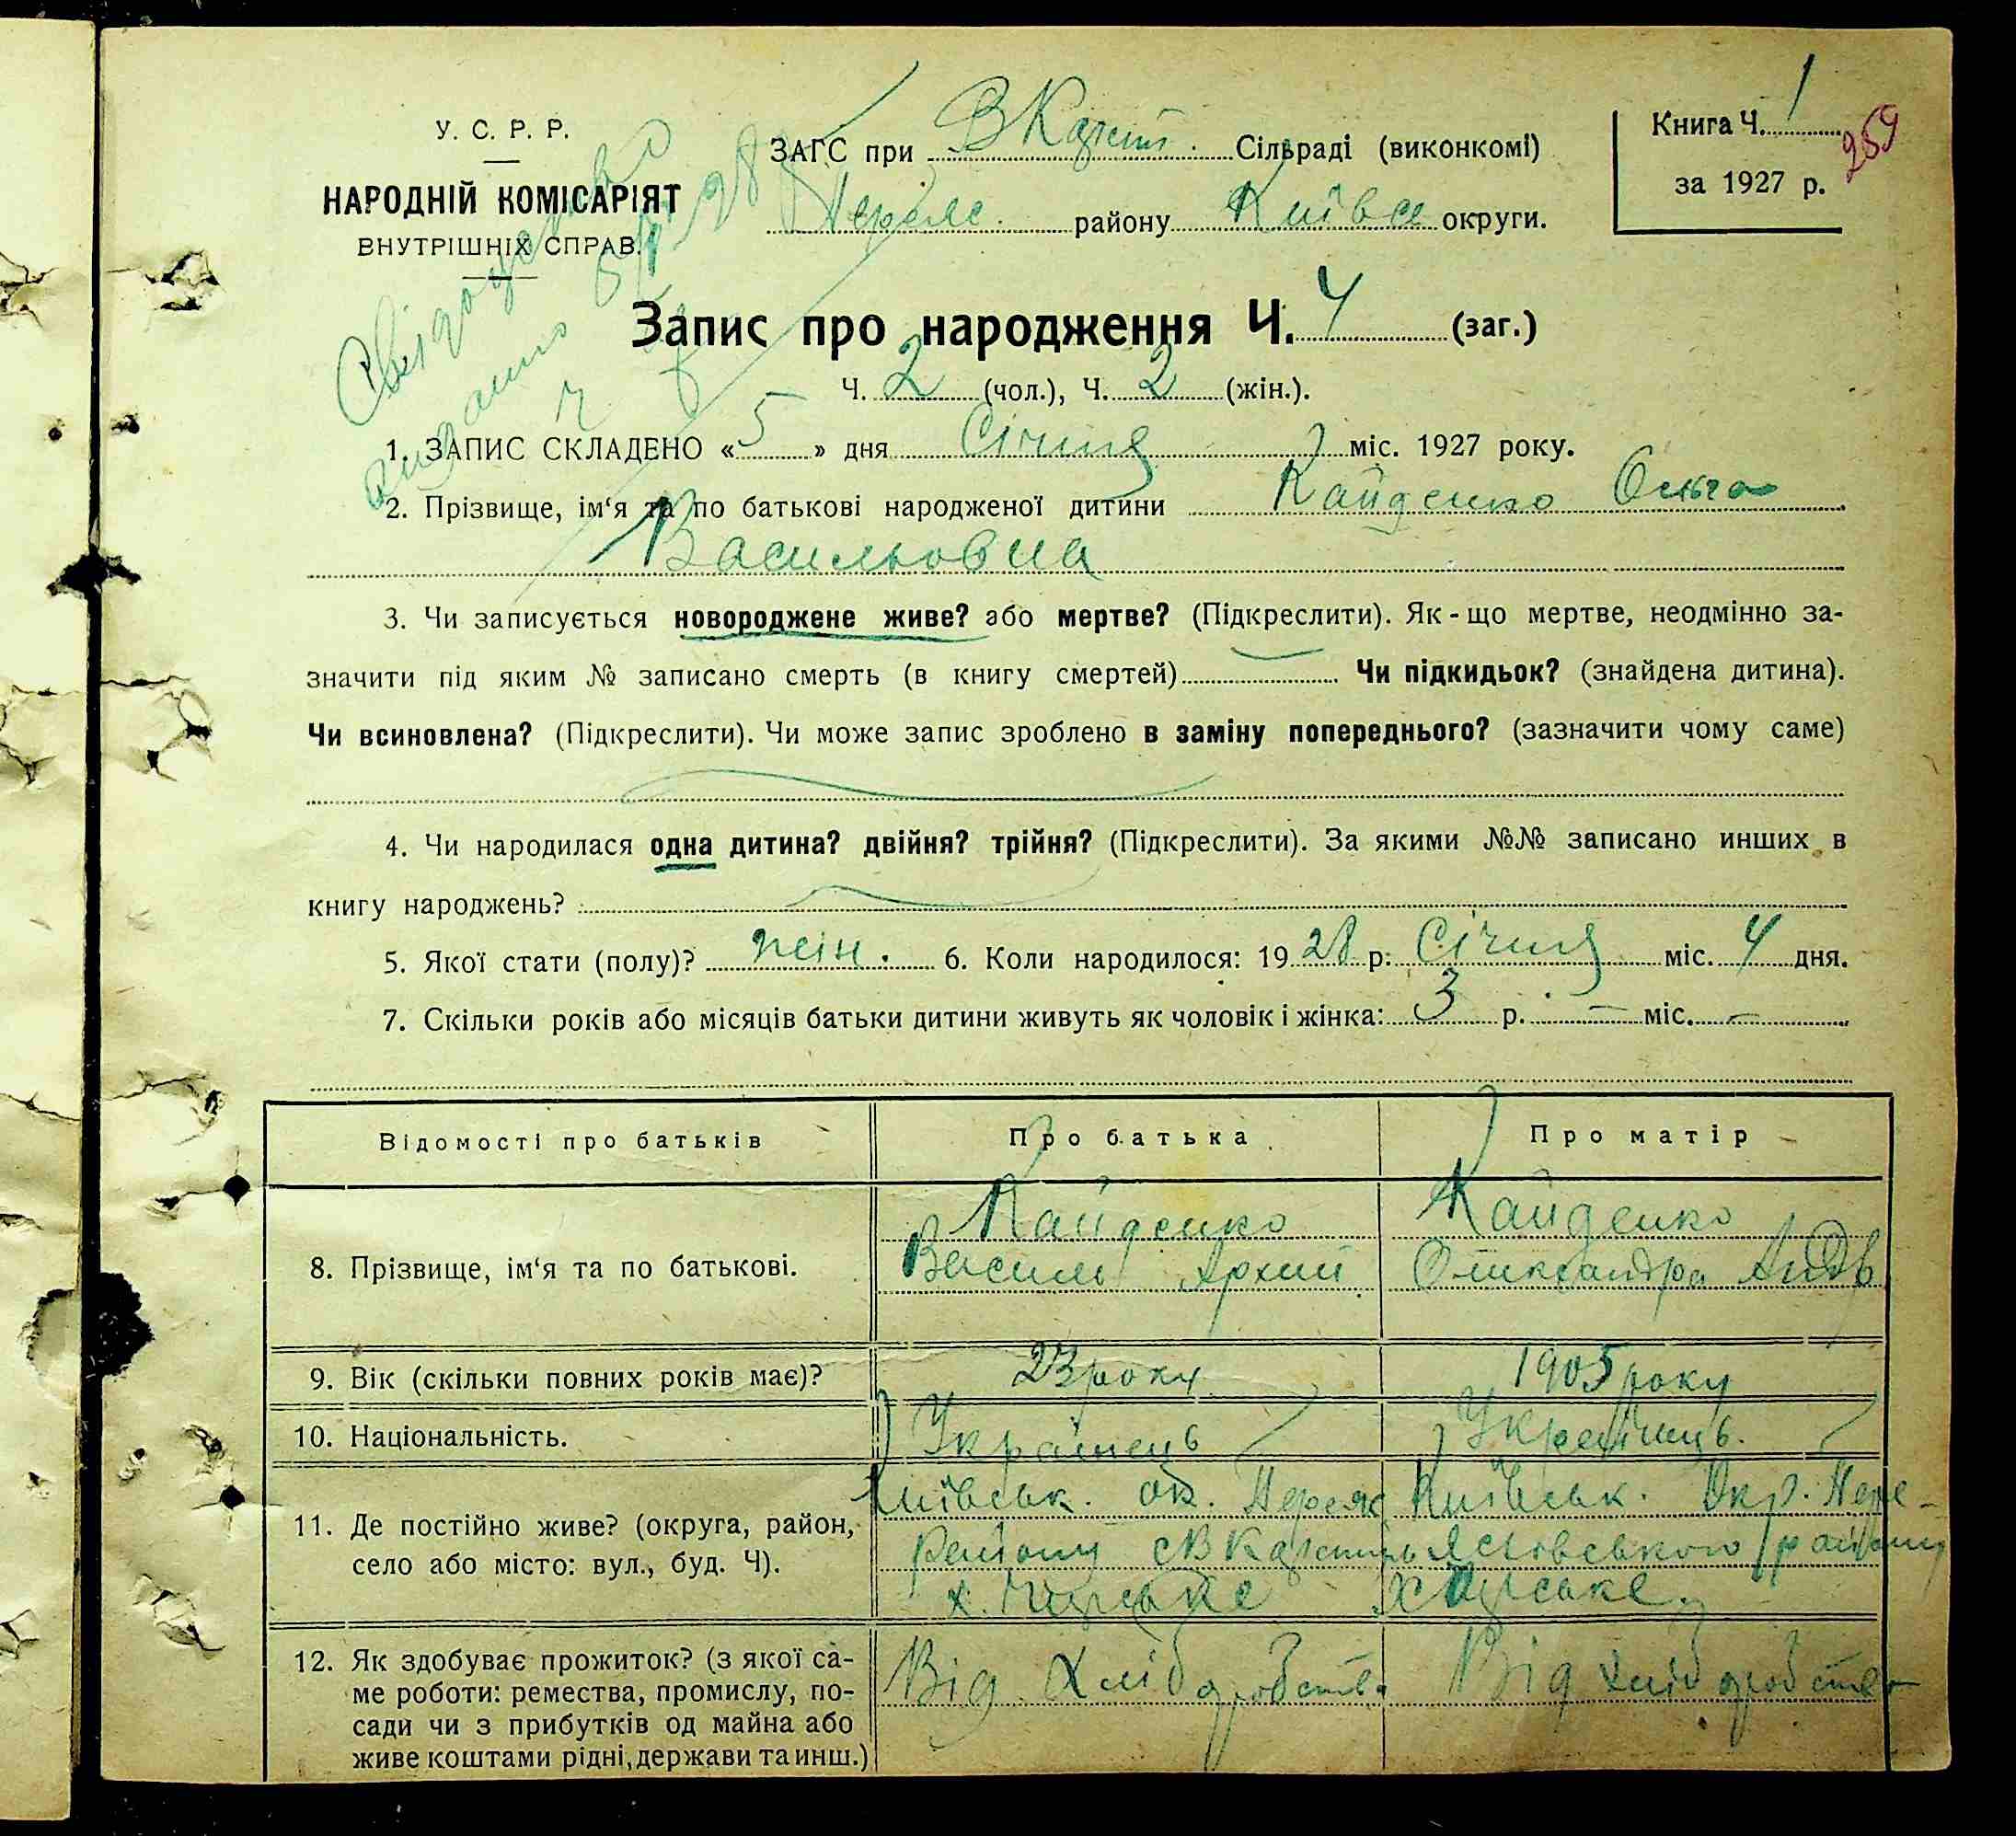 У. С. Р. Р.
НАРОДНІЙ КОМІСАРІЯТ
ВНУТРІШНІХ СПРАВ.
ЗАГС при В Карат. Сільраді (виконкомі)
Переяс. району Київсь округи.
Книга Ч. 1
за 1927 р.
259
Запис про народження Ч. 4 (заг.)
Ч. 2 (чол.), Ч. 2 (жін.).
1. ЗАПИС СКЛАДЕНО «5» дня Січня міс. 1927 року.
2. Прізвище, ім‘я та по батькові народженої дитини Кайденко Ольга
Васильовна
3. Чи записується новороджене живе? або мертве? (Підкреслити). Як-що мертве, неодмінно за-
значити під яким № записано смерть (в книгу смертей) Чи підкидьок? (знайдена дитина).
Чи всиновлена? (Підкреслити). Чи може запис зроблено в заміну попереднього? (зазначити чому саме)
4. Чи народилася одна дитина? двійня? трійня? (Підкреслити). За якими №№ записано инших в
книгу народжень?
5. Якої стати (полу)? жін. 6. Коли народилося: 1928 р. Січня міс. 4 дня.
7. Скільки років або місяців батьки дитини живуть як чоловік і жінка: 3 р. — міс. —
Відомості про батьків Про батька Про матір
8. Прізвище, ім‘я та по батькові.
Кайденко Кайденко
Василь Архип Олександра
9. Вік (скільки повних років має)? 23 року 1905 року
10. Національність. Українець Українець.
11. Де постійно живе? (округа, район,
село або місто: вул., буд. Ч).
Київськ. ок. Переяс Київськ. Окр. Пере-
району яславського району
х.
12. Як здобуває прожиток? (з якої са-
ме роботи: ремества, промислу, по-
сади чи з прибутків од майна або
живе коштами рідні, держави та инш.)
Від Хліборобств. Від хліборобства